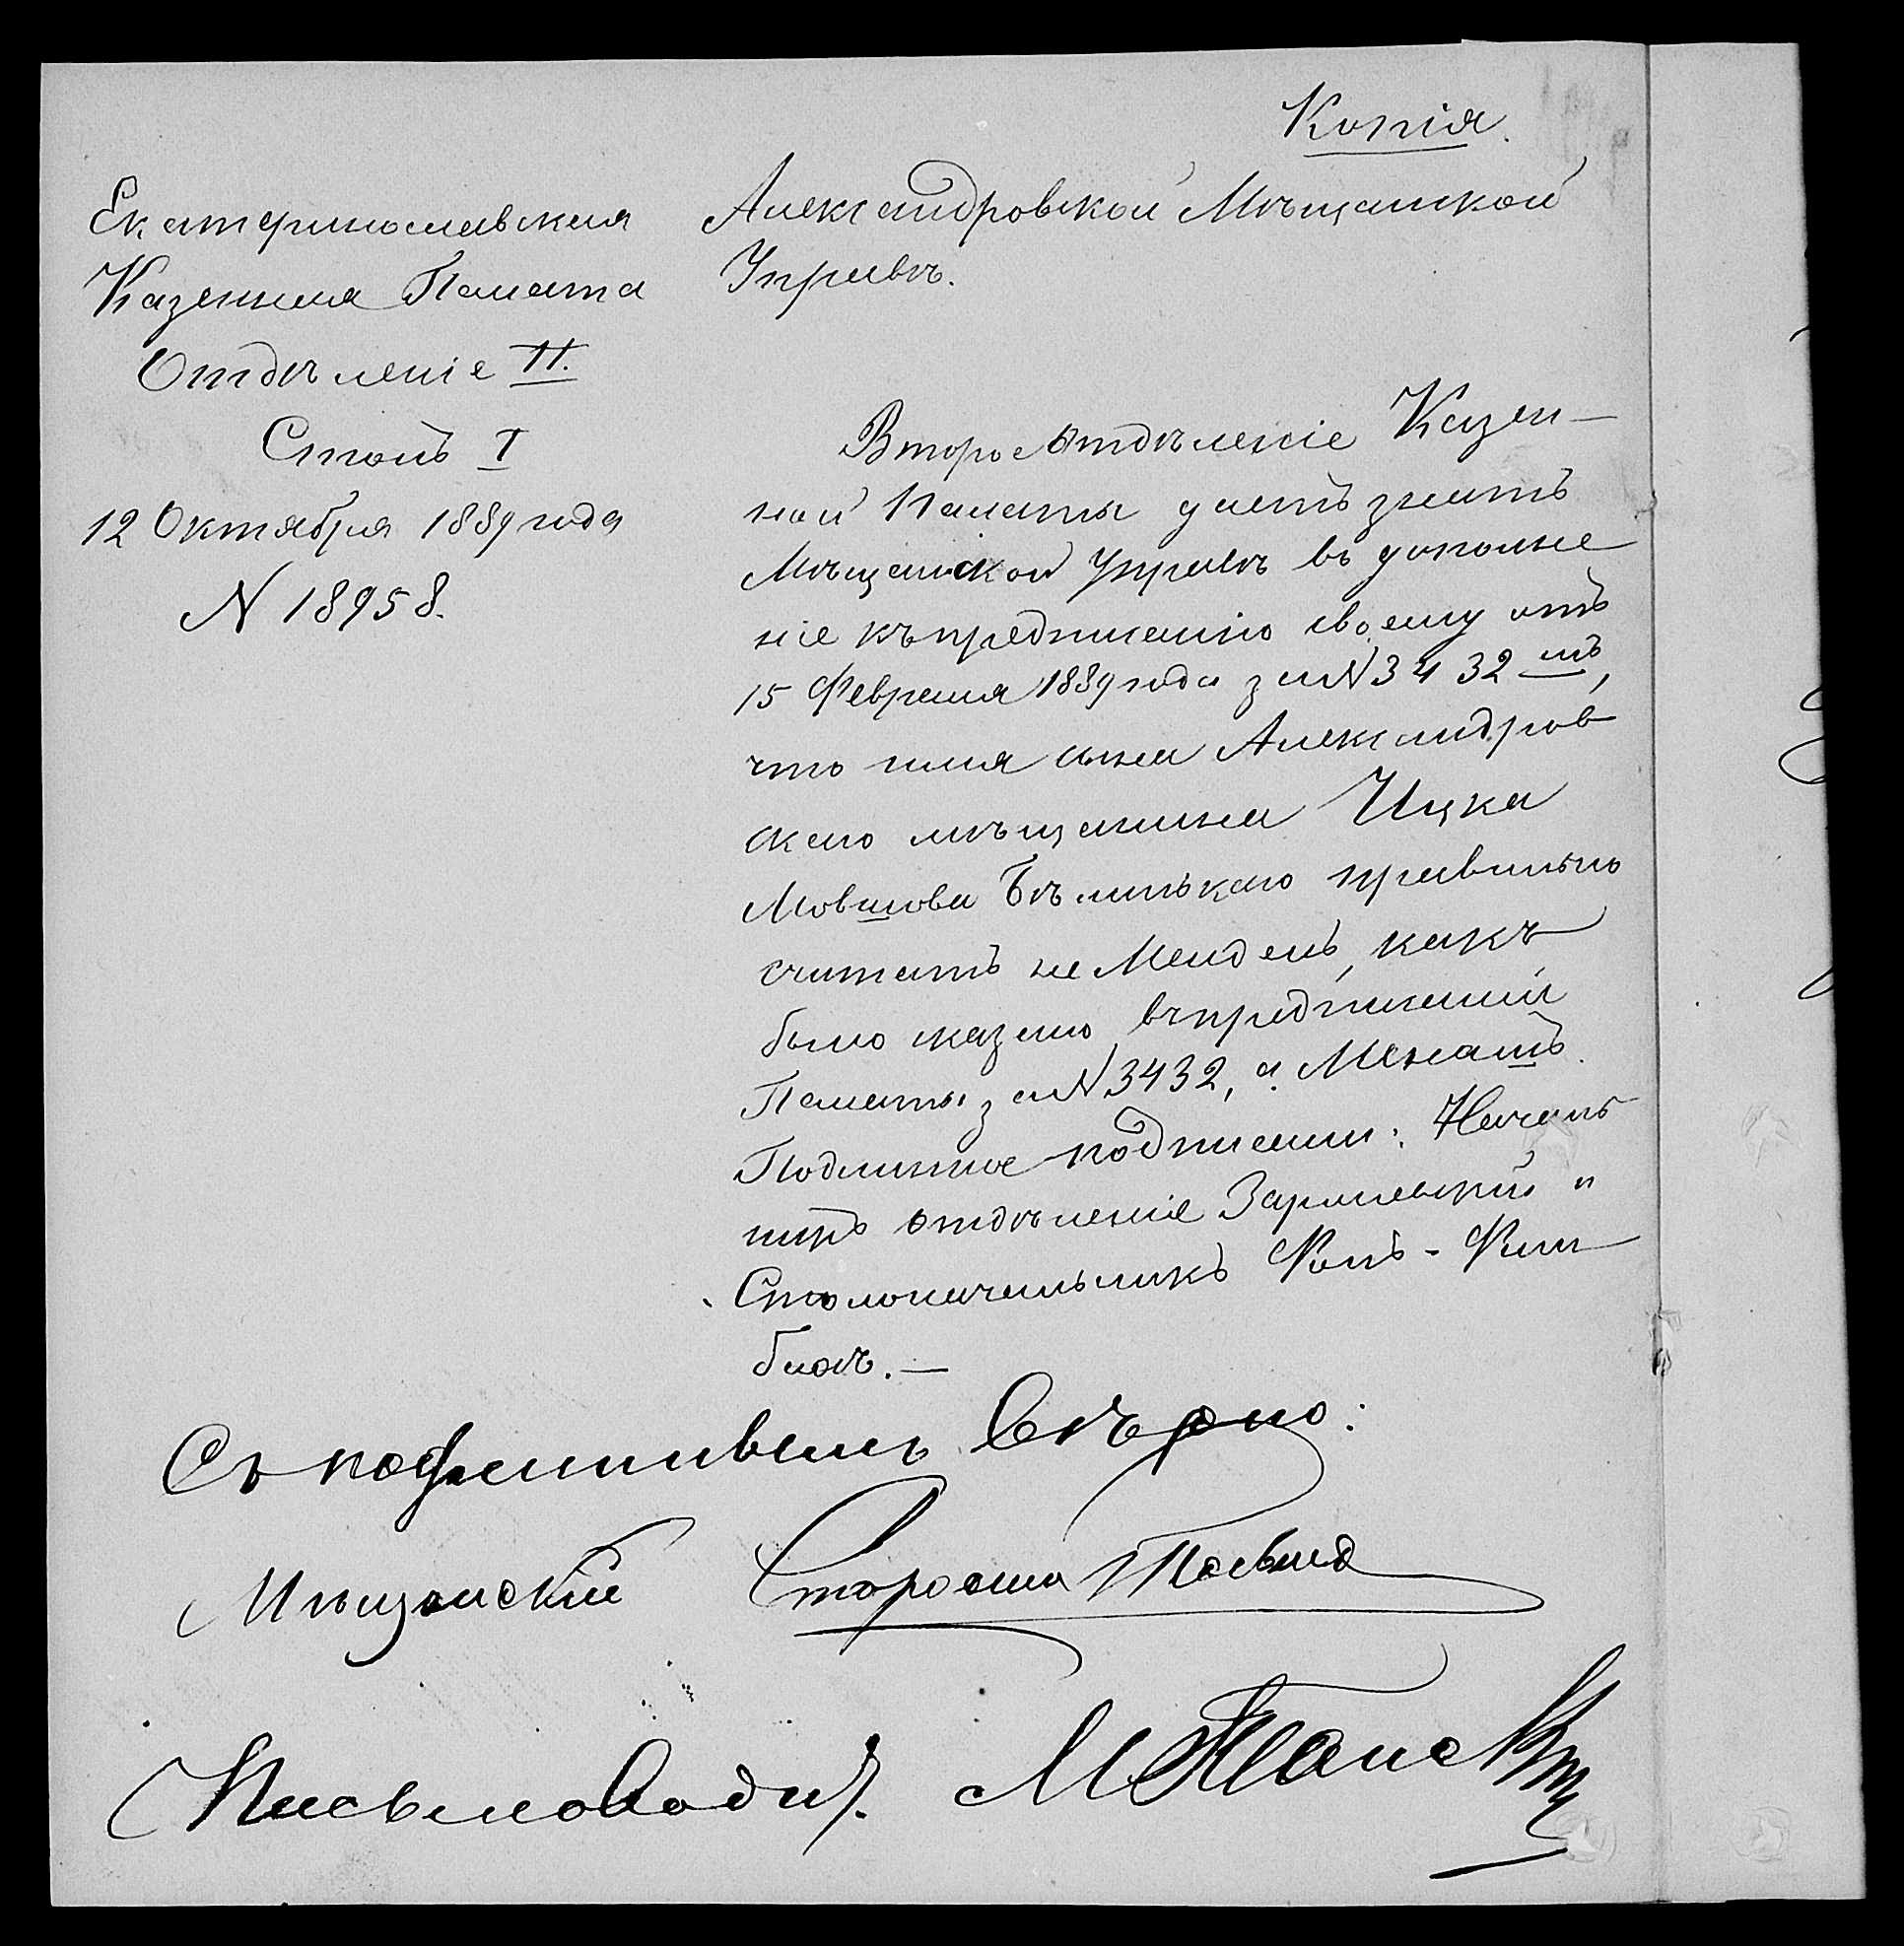 Копія.
Екатеринославская
Казенная Палата
Отдѣленіе II.
Столъ I
12 Октября 1889 года
N 18958.
Александровской Мѣщанской
Управѣ.
Второе Отдѣленіе Казен-
ной Палаты даетъ знать
Мѣщанской Управѣ въ дополне
ніе къ предписанію своему отъ
15 Февраля 1889 года за N 3432 мъ,
что имя сына Александров
скаго мѣщанина Ицка
Мовшова Бѣлинькаго правильно
считать не Мендель, какъ
было сказано въ предписаніи
Палаты за N 3432, а Менашъ.
Подлинное подписали: Началь
никъ отдѣленіе и
Столоначальникъ Фонъ-
Съ подлиннымъ Вѣрно:
Мѣщанскій Староста
Письмоводит.